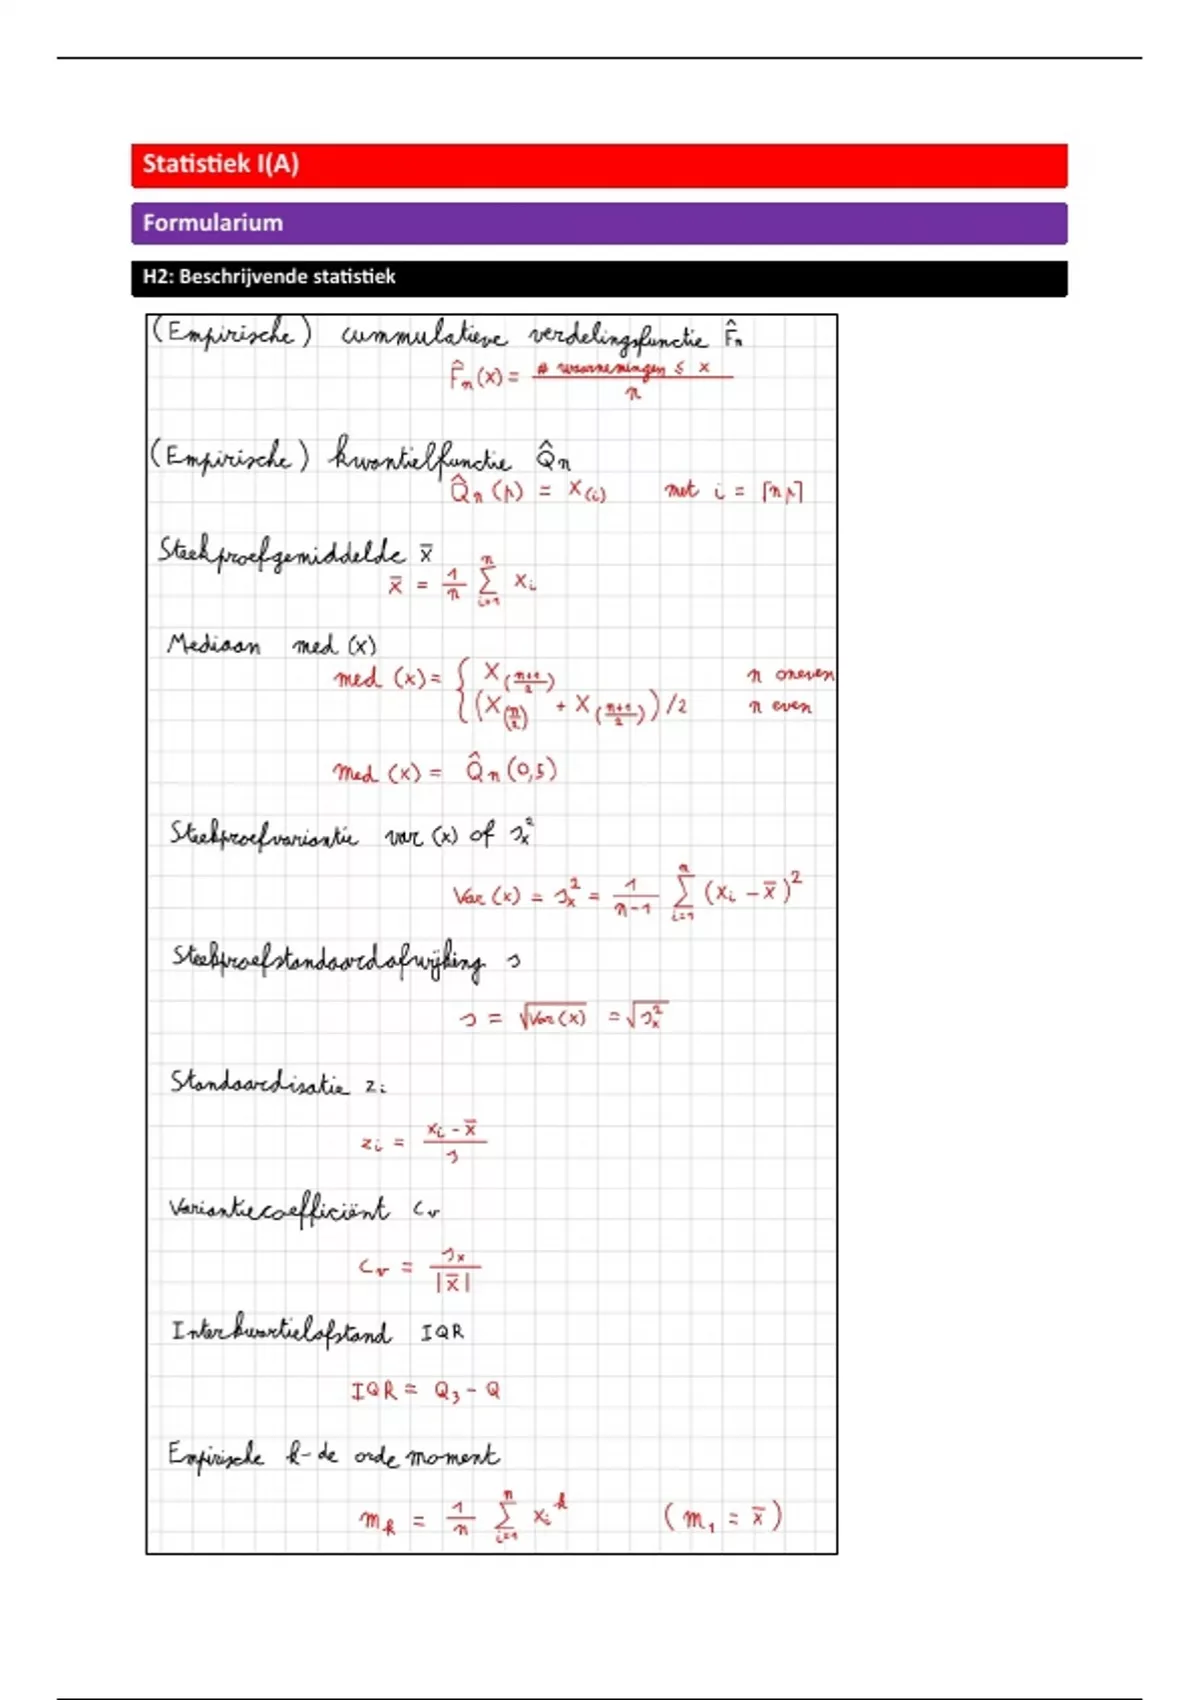 Statistiek I(A)
Formularium
H2: Beschrijvende statistiek
(Empirische) cummulatieve verdelingsfunctie F̂n
F̂n(x) = # waarnemingen ≤ x / n
(Empirische) kwantielfunctie Q̂n
Q̂n(p) = x(i) met i = ⌈np⌉
Steekproefgemiddelde x̄
x̄ = 1/n ∑ i=1 n xi
Mediaan med (x)
med (x) = { x((n+1)/2) n oneven
(x(n/2) + x((n+1)/2))/2 n even
med (x) = Q̂n(0,5)
Steekproefvariantie var (x) of sx²
Var (x) = sx² = 1/(n-1) ∑ i=1 n (xi - x̄)²
Steekproefstandaardafwijking s
s = √Var(x) = √sx²
Standaardisatie zi
zi = (xi - x̄)/s
Variantiecoefficiënt Cv
Cv = sx/|x̄|
Interkwartielafstand IQR
IQR = Q3 - Q
Empirische k-de orde moment
mk = 1/n ∑ i=1 n xi^k (m1 = x̄)